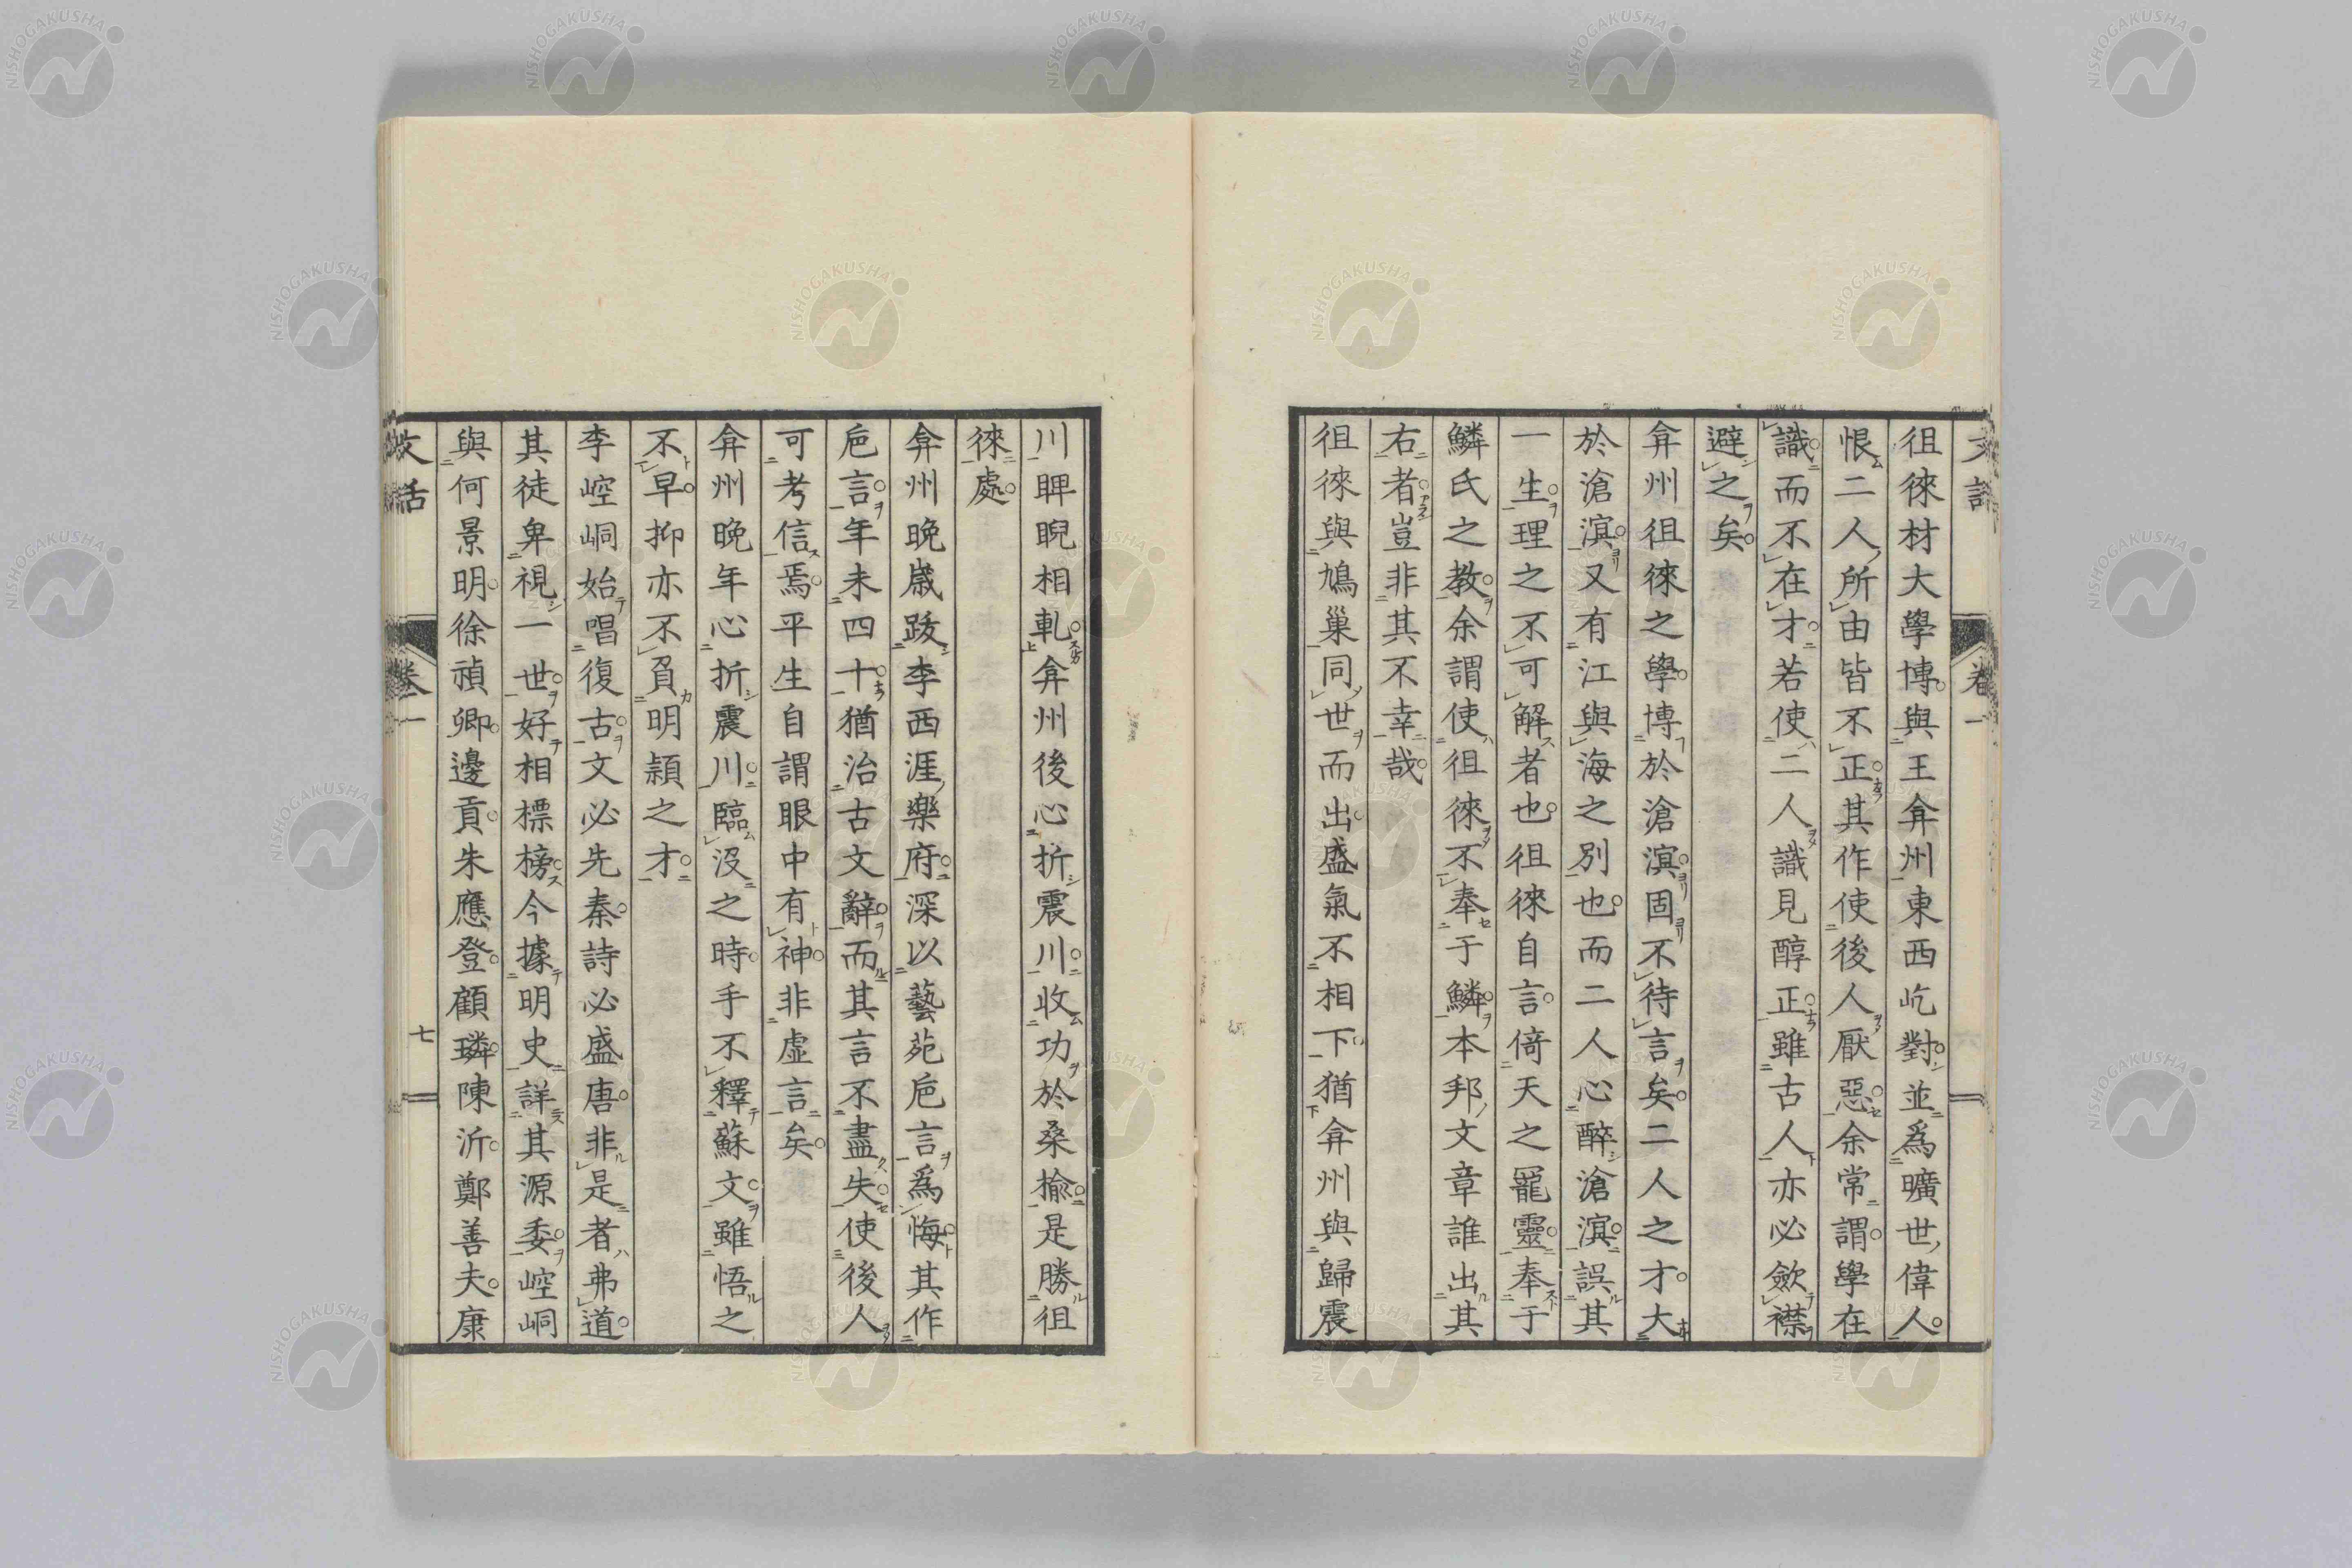 文話 卷一
徂徠材大學博與王弇州東西屹對並爲曠世偉人
恨二人所由皆不正其作使後人厭惡余常謂學在
識而不在才若使二人識見醇正雖古人亦必斂襟
避之矣
弇州徂徠之學博於滄溟固不待言矣二人之才大
於滄溟又有江與海之別也而二人心醉滄溟誤其
一生理之不可解者也徂徠自言倚天之寵靈奉于
鱗氏之教余謂使徂徠不奉于鱗本邦文章誰出其
右者豈非其不幸哉
徂徠與鳩巢同世而出盛氣不相下猶弇州與歸震
川睥睨相軋弇州後心折震川收功於桑榆是勝徂
徠處
弇州晚歲跋李西涯樂府深以藝苑巵言爲悔其作
巵言年未四十猶治古文辭而其言不盡失使後人
可考信焉平生自謂眼中有神非虛言矣
弇州晚年心折震川臨沒之時手不釋蘇文雖悟之
不早抑亦不負明穎之才
李崆峒始唱復古文必先秦詩必盛唐非是者弗道
其徒卑視一世好相標榜今據明史詳其源委崆峒
與何景明徐禎卿邊貢朱應登顧璘陳沂鄭善夫康
文話 卷一 七
NISHOGAKUSHA